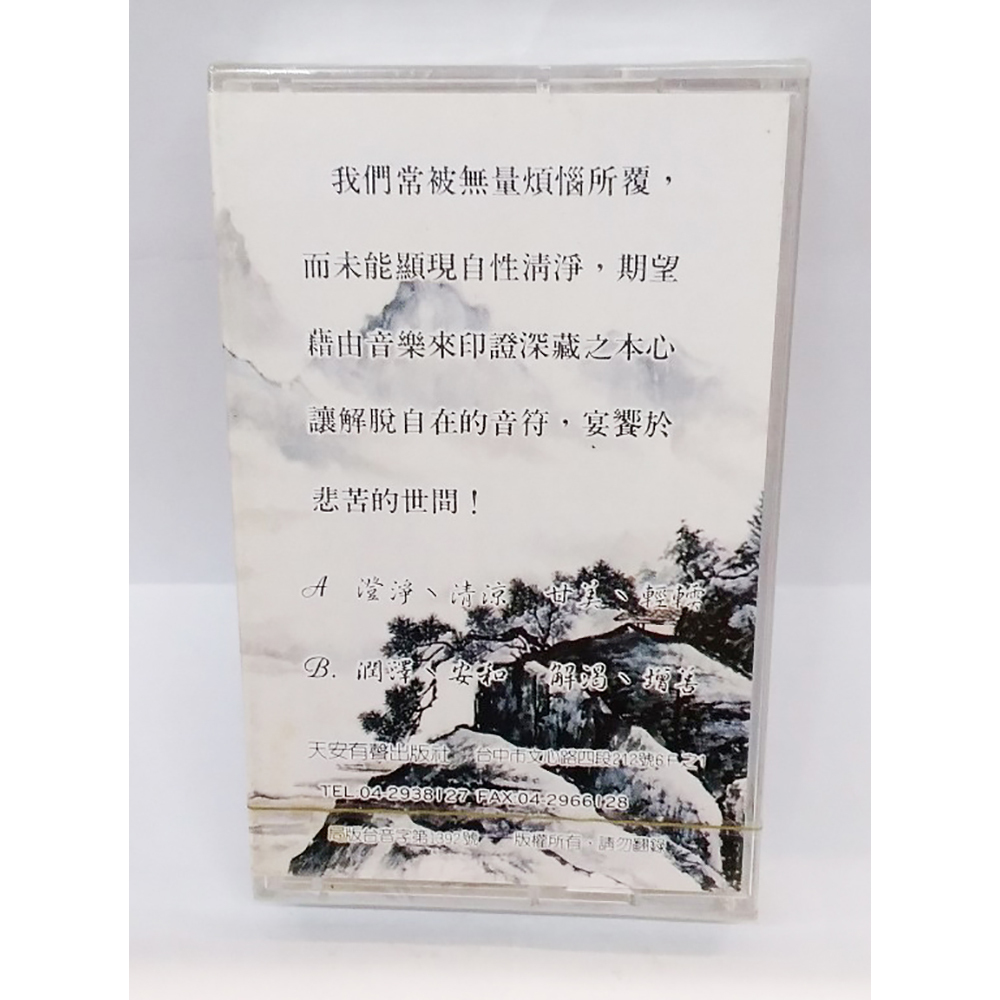 我們常被無量煩惱所覆，
而未能顯現自性清淨，期望
藉由音樂來印證深藏之本心
讓解脫自在的音符，宴饗於
悲苦的世間！
A 澄淨、清涼、甘美、輕軟
B. 潤澤、安和、解渴、增善
天安有聲出版社 台中市文心路四段212號6F之1
TEL 04-2938127 FAX:04-2966128
局版台音字第1392號 版權所有，請勿翻錄